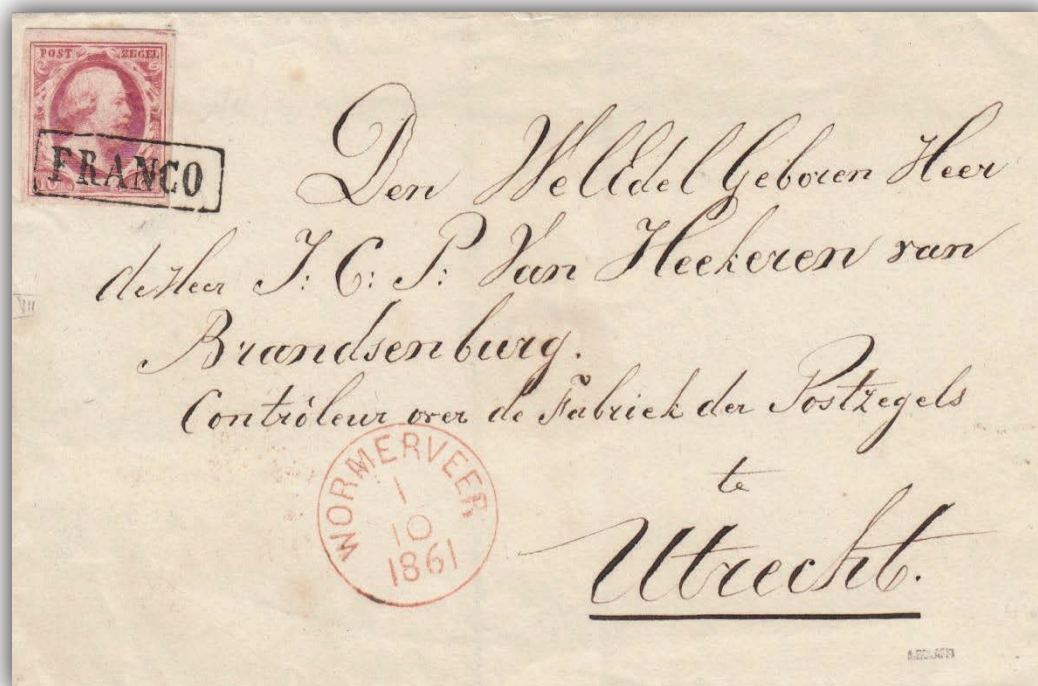 POST ZEGEL
FRANCO
Den WelEdel Geboren Heer
de Heer J: C: P: Van Heekeren van
Brandsenburg.
Contrôleur over de Fabriek der Postzegels
te
Utrecht.
WORMERVEER
1
10
1861
VII